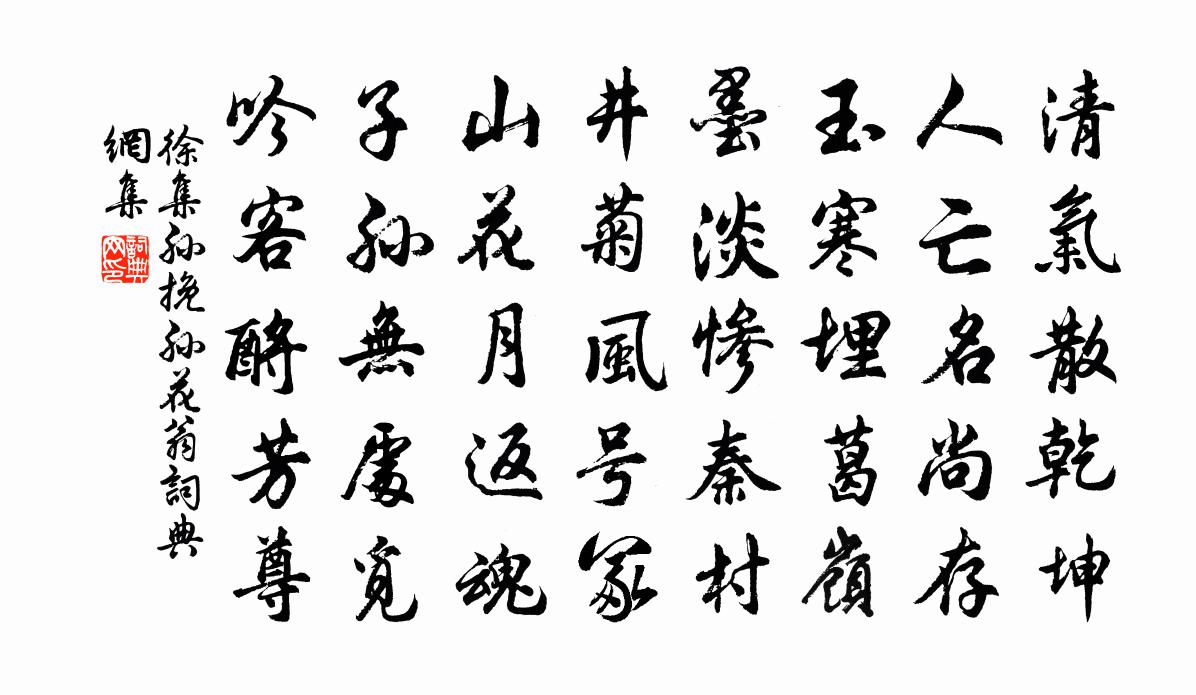 清氣散乾坤
人亡名尚存
玉寒埋葛嶺
墨淡慘秦村
井菊風号冢
山花月返魂
子孙無處覓
吟客酹芳尊
徐集孙挽孙花翁詞典
網集
詞典
网印